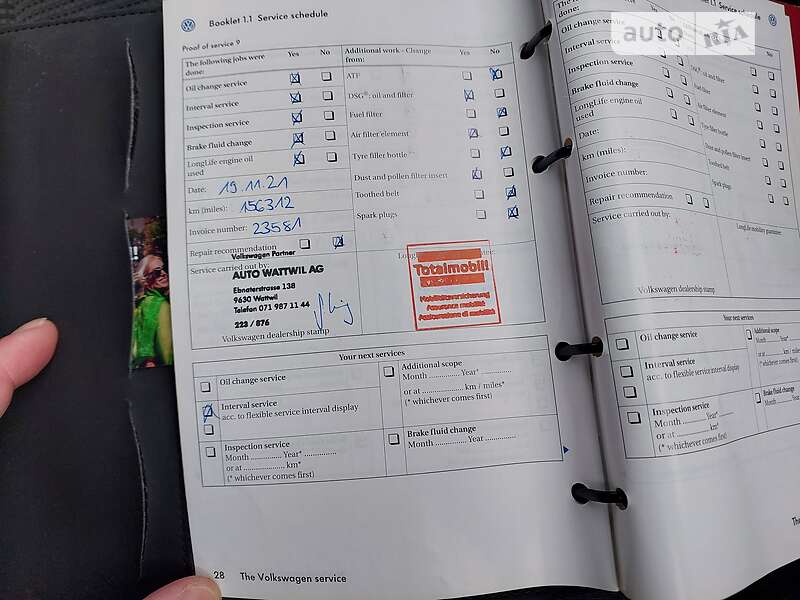 Booklet 1.1 Service schedule
Proof of service 9
The following jobs were done: Yes No
Oil change service
Interval service
Inspection service
Brake fluid change
LongLife engine oil used
Date: 19.11.21
km (miles): 156312
Invoice number: 23581
Repair recommendation
Service carried out by:
Volkswagen Partner
AUTO WATTWIL AG
Ebnaterstrasse 138
9630 Wattwil
Telefon 071 987 11 44
223 / 876
Volkswagen dealership stamp
Additional work - Change from: Yes No
ATF
DSG®: oil and filter
Fuel filter
Air filter element
Tyre filler bottle
Dust and pollen filter insert
Toothed belt
Spark plugs
Totalmobil!
Mobilitätsversicherung
Assurance mobilité
Assicurazione di mobilità
Your next services
Oil change service
Interval service
acc. to flexible service interval display
Inspection service
Month ........... Year* ...............
or at ................... km*
(* whichever comes first)
Additional scope
Month ........... Year* ...............
or at ................... km / miles*
(* whichever comes first)
Brake fluid change
Month ........... Year ...............
28 The Volkswagen service
1.1 Service schedule
auto RIA
done:
No
Oil change service
Interval service
Inspection service
Brake fluid change
LongLife engine oil used
Date:
km (miles):
Invoice number:
Repair recommendation
Service carried out by:
Volkswagen dealership stamp
oil and filter
Fuel filter
Air filter element
Tyre filler bottle
Dust and pollen filter insert
Toothed belt
Spark plugs
LongLife mobility guarantee:
Your next services
Oil change service
Interval service
acc. to flexible service interval display
Inspection service
Month ........... Year*
or at ................... km*
(* whichever comes first)
Additional scope
Month ........... Year*
or at ................... km
(* whichever comes
Brake fluid change
Month